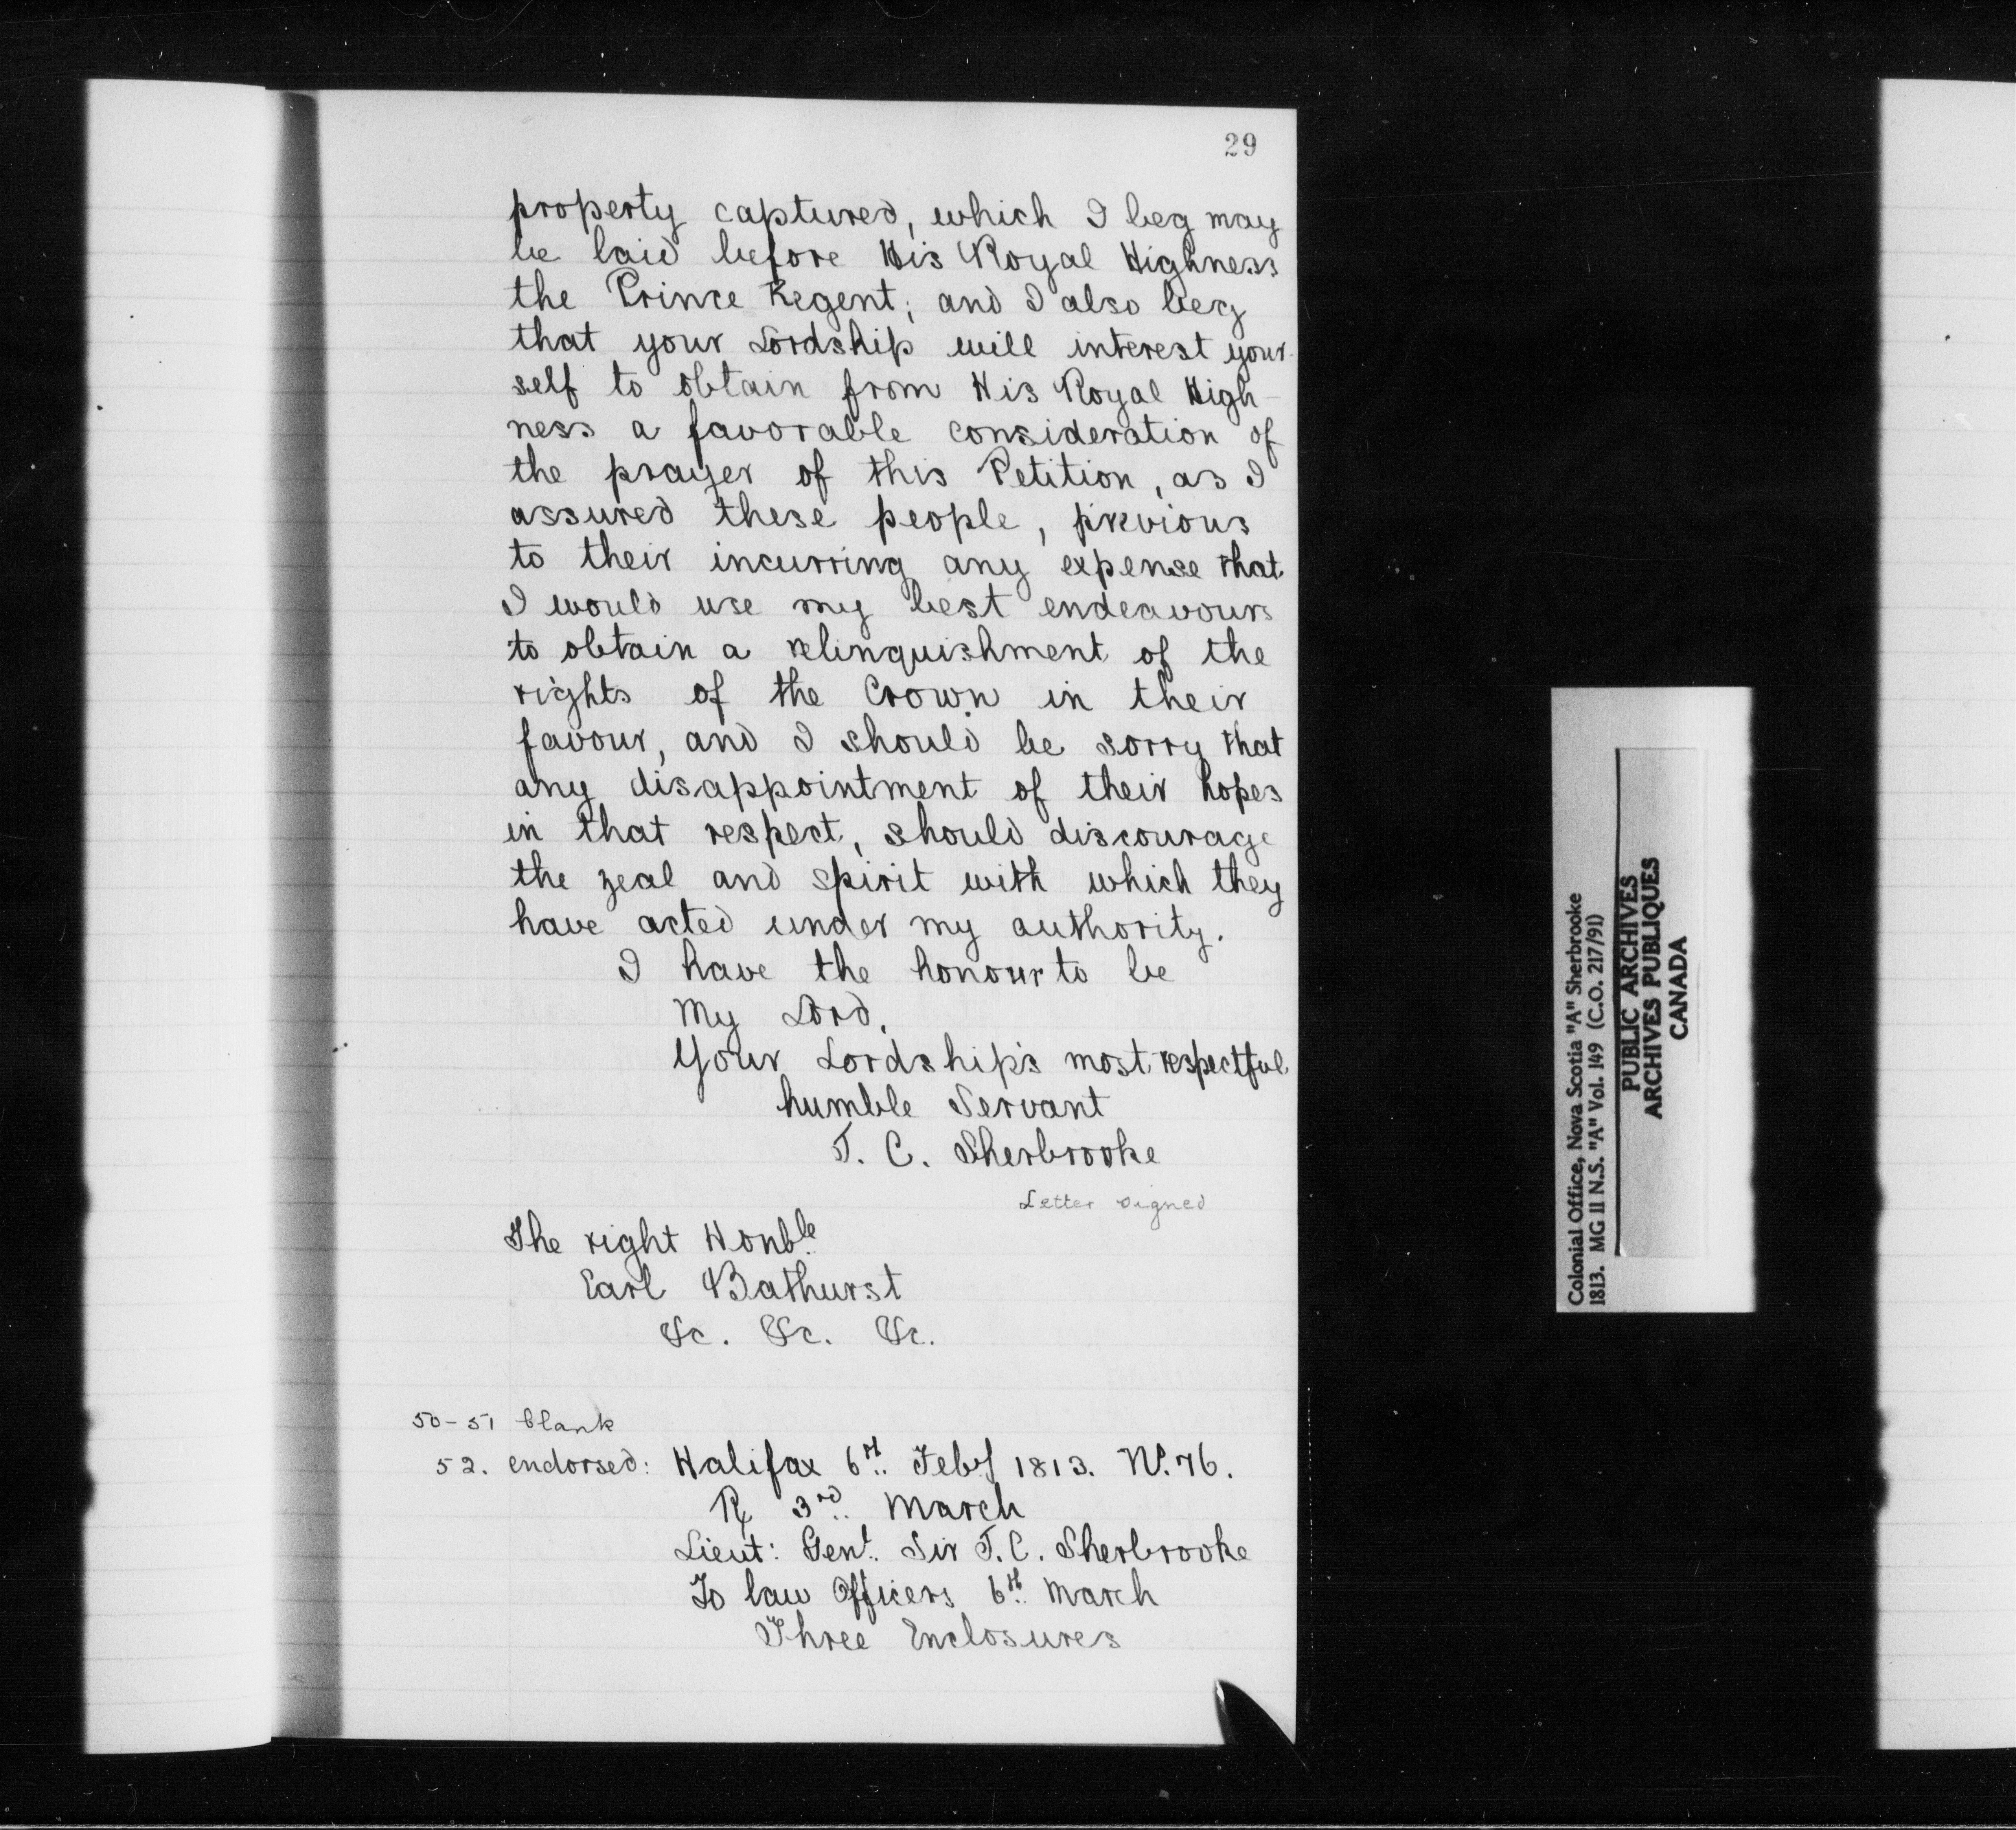 29
property captured, which I beg may
be laid before His Royal Highness
the Prince Regent; and I also beg
that your Lordship will interest your-
self to obtain from His Royal High-
ness a favorable consideration of
the prayer of this Petition, as I
assured these people, previous
to their incurring any expense that
I would use my best endeavours
to obtain a relinquishment of the
rights of the Crown in their
favour, and I should be sorry that
any disappointment of their hopes
in that respect, should discourage
the zeal and spirit with which they
have acted under my authority.
I have the honour to be
My Lord,
Your Lordship's most respectful
humble Servant
J. C. Sherbrooke
Letter signed
The right Honble
Earl Bathurst
&c. &c. &c.
50-51 blank
52. endorsed: Halifax 6th Feby 1813. No. 76.
Rx 3rd March
Lieut: Genl. Sir J. C. Sherbrooke
To law Officers 6th March
Three Enclosures
Colonial Office, Nova Scotia "A" Sherbrooke
1813. MG 11 N.S. "A" Vol. 149 (C.O. 217/91)
PUBLIC ARCHIVES
ARCHIVES PUBLIQUES
CANADA